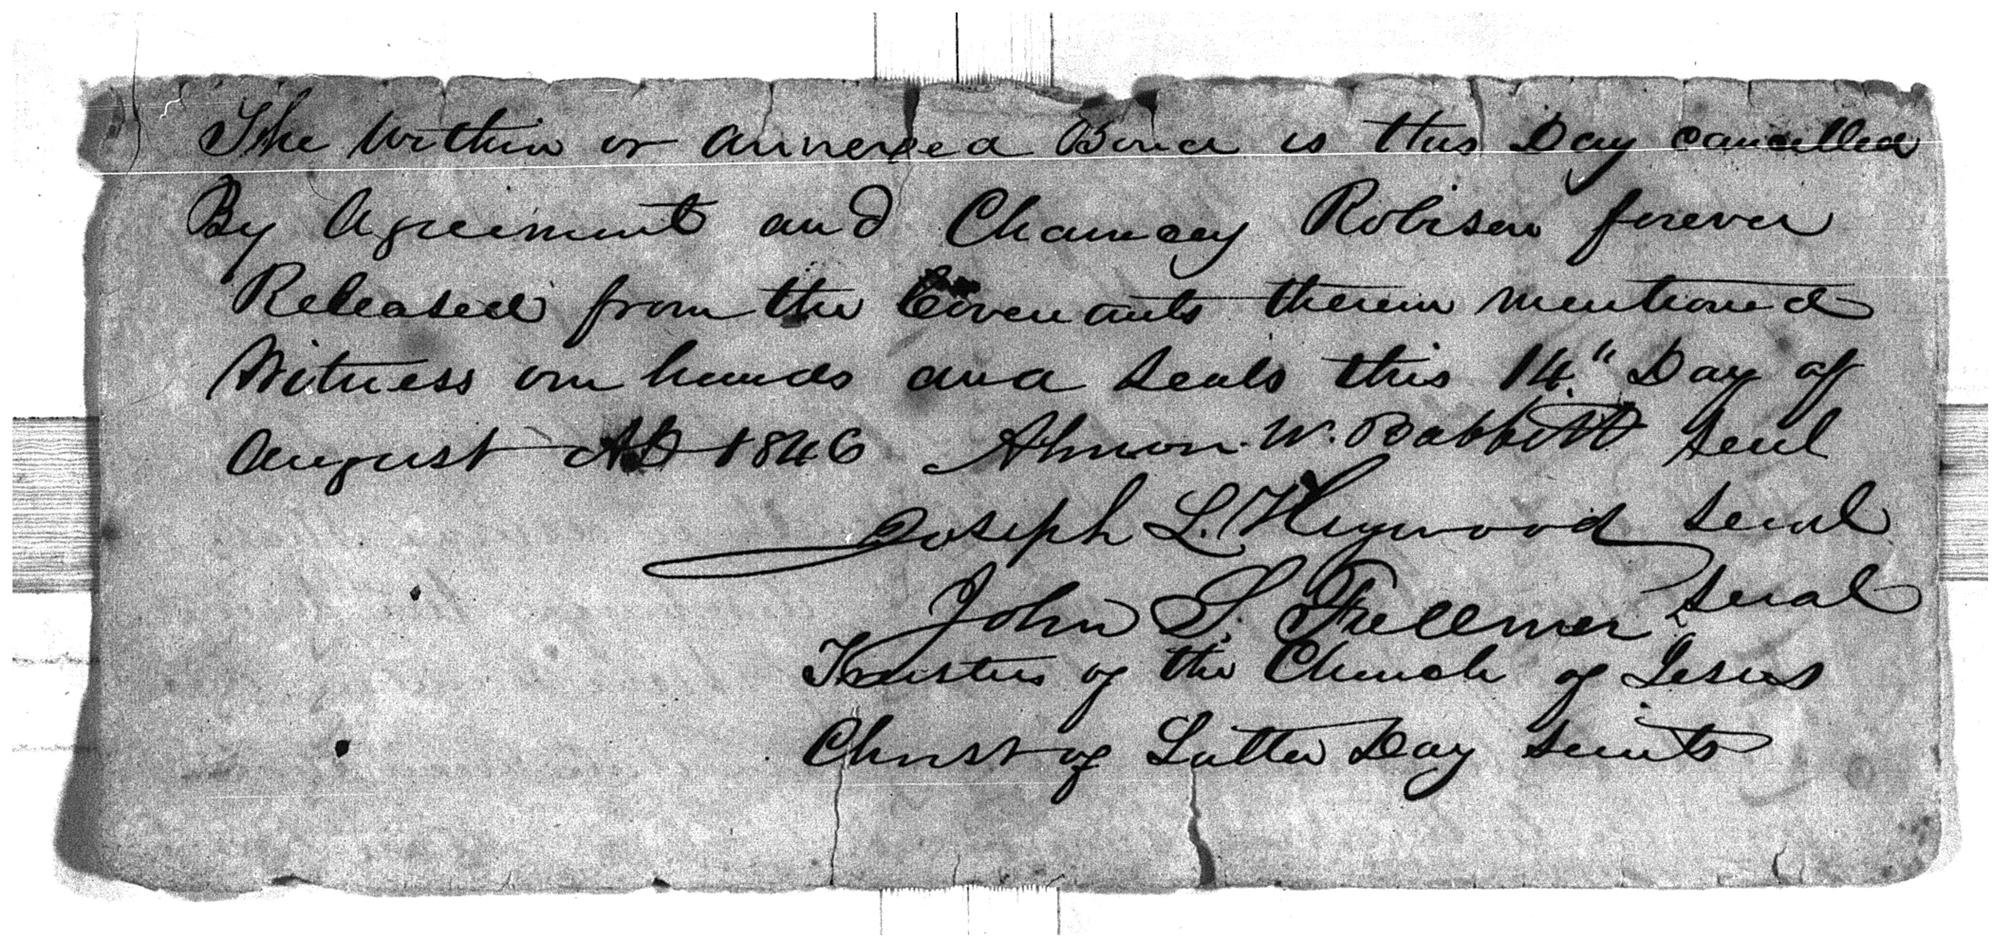 The Within or annexed Bond is this Day cancelled
By Agreement and Chauncey Robison forever
Released from the Covenants therein mentioned
Witness our hands and Seals this 14" Day of
August AD 1846 Almon W. Babbitt Seal
Joseph L. Heywood Seal
John S. Fullmer Seal
Trustees of the Church of Jesus
Christ of Latter Day Saints